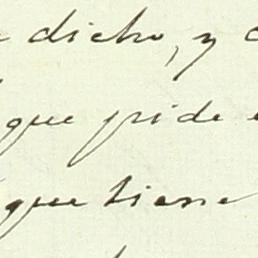 dicho, y
que pide
que tiene